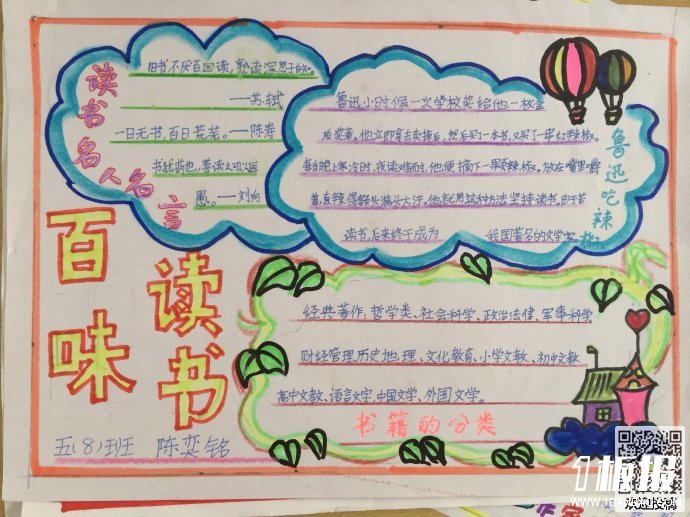 读书名人名言
旧书不厌百回读,熟读深思子自知。
——苏轼
一日无书,百日荒芜。——陈寿
书犹药也,善读之可以医
愚。——刘向
鲁迅吃辣椒
鲁迅小时候一次学校奖给他一枚金
质奖章。他立即拿去卖掉后,然后买了一本书,又买了一串红辣椒。
每当晚上寒冷时,夜读难耐时,他便摘下一颗辣椒,放在嘴里嚼
着,直辣得额头满头大汗。他就用这种方法坚持读书。由于苦
读书,后来终于成为 我国著名的文学家。
百味
读书
经典著作:哲学类、社会科学、政治法律、军事科学
财经管理历史地理、文化教育、小学文教、初中文教
高中文教、语言文字、中国文学、外国文学。
书籍的分类
五(8)班 陈奕铭
板报
欢迎投稿